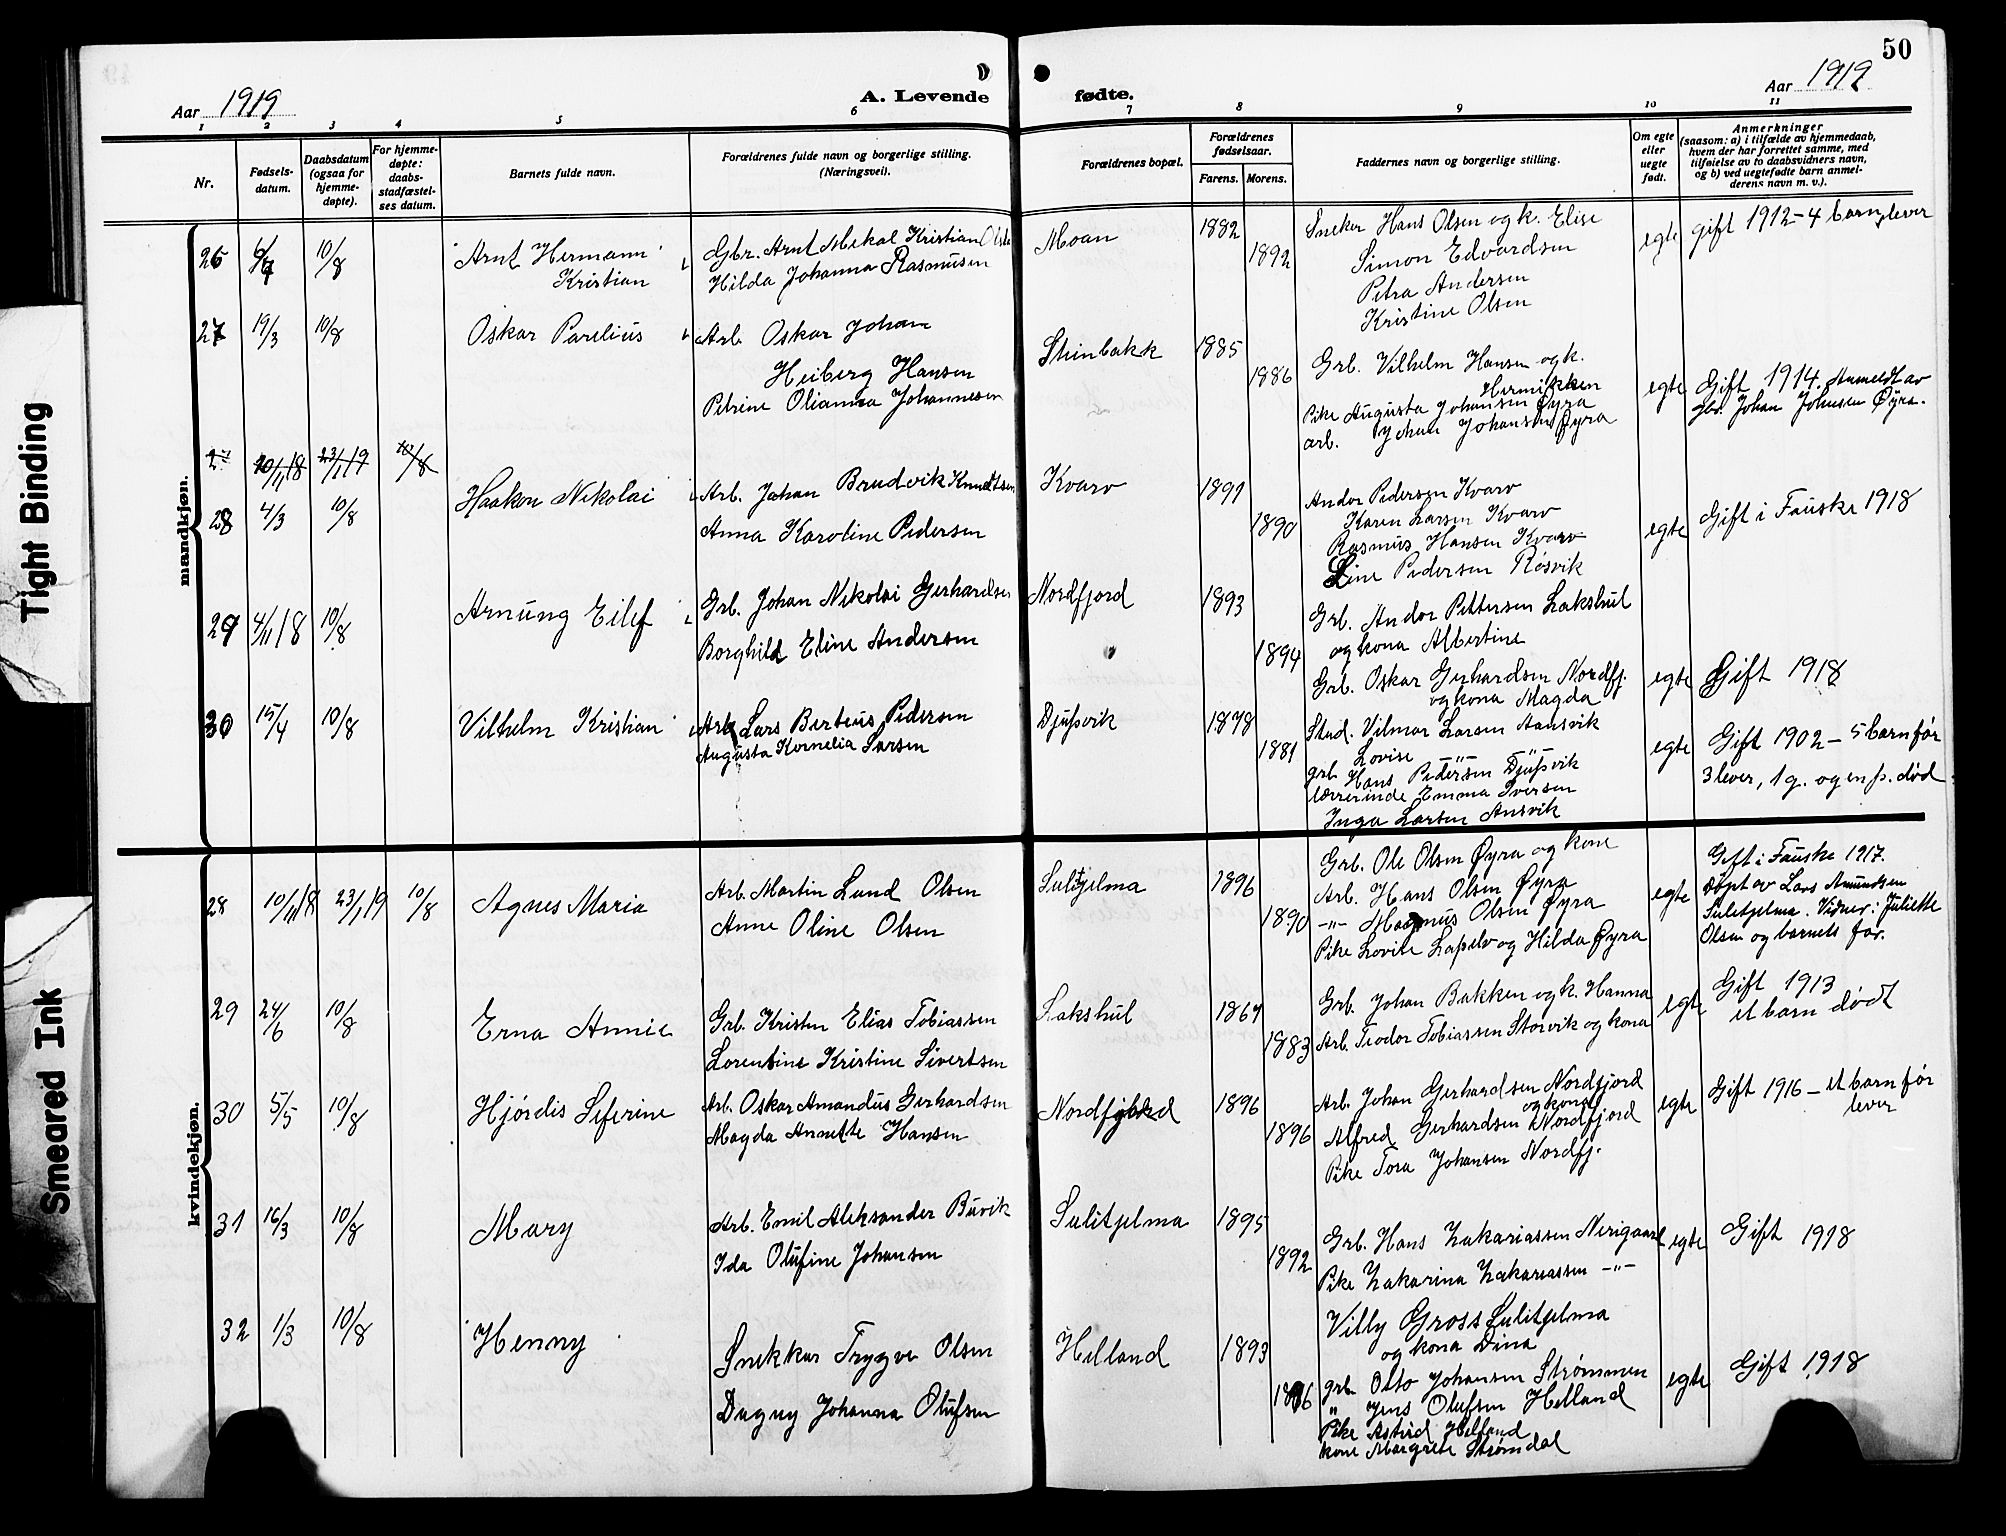 50
Aar 1919
A. Levende
fødte.
Aar 1919
1 2 3 4 5 6 7 8 9 10 11
Nr.
Fødsels-
datum.
Daabsdatum
(ogsaa for
hjemme-
døpte).
For hjemme-
døpte:
daabs-
stadfæstel-
ses datum.
Barnets fulde navn.
Forældrenes fulde navn og borgerlige stilling.
(Næringsvei).
Forældrenes bopæl.
Forældrenes
fødselsaar.
Farens. Morens.
Faddernes navn og borgerlige stilling.
Om egte
eller
uegte
født.
Anmerkninger
(saasom: a) i tilfælde av hjemmedaab,
hvem der har forrettet samme, med
tilføielse av to daabsvidners navn,
og b) ved uegtefødte barn anmel-
derens navn m. v.).
mandkjøn.
26 10/8
Arnt Hermann
Kristian
Gbr. Arnt Mekal Kristian
Hilda Johanna Rasmusen
Moan
1882
1892
Sneker Hans Olsen og k. Elise
Simon Edvardsen
Petra Andersen
Kristine Olsen
egte
gift 1912 - 4 barn lever
27 19/3 10/8
Oskar Parelius
Arb. Oskar Johan
Heiberg Hansen
Petrine Olianna Johannesen
Stenbakk
1885
1886
Grb. Vilhelm Hansen og k.
Hermikken
Pike Augusta Johansen Øyra
arb. Johan Johansen Øyra
egte
Gift 1914. Anmeldt av
gbr. Johan Johnsen Øyra.
27 20/11 18 23/1 19 10/8
28 4/3 10/8
Haakon Nikolai
Arb. Johan Brudvik Knudtsen
Anna Karoline Pedersen
Kvarv
1891
1890
Andor Pedersen Kvarv
Karen Larsen Kvarv
Rasmus Hansen Kvarv
Line Pedersen Røsvik
egte
Gift i Fauske 1918
29 4/11 18 10/8
Arnung Eilef
Grb. Johan Nikolai Gerhardsen
Borghild Eline Andersen
Nordfjord
1893
1894
Grb. Andor Pettersen Lakshul
og kona Albertine
Grb. Oskar Gerhardsen Nordfj.
og kona Magda
egte
Gift 1918
30 15/4 10/8
Vilhelm Kristian
Arb. Lars Berteus Pedersen
Augusta Kornelia Larsen
Djupvik
1878
1881
Stud. Vilmar Larsen Aansvik
Lovise -"-
grb. Hans Pedersen Djupvik
lærerinde Emma Iversen
Inga Larsen Ansvik
egte
Gift 1902 - 5 barn før
3 lever, 1 g. og en p. død
kvindekjøn.
28 10/11 18 23/1 19 10/8
Agnes Maria
Arb. Martin Lund Olsen
Anne Oline Olsen
Sulitjelma
1896
1890
Grb. Ole Olsen Øyra og kone
Arb. Hans Olsen Øyra
-"- Magnus Olsen Øyra
Pike Lovise Lapelv og Hilda Øyra
egte
Gift i Fauske 1917.
Døpt av Lars Amundsen
Sulitjelma. Vidner: Juliette
Olsen og barnets far.
29 24/6 10/8
Erna Annie
Grb. Kristen Elias Tobiassen
Lorentine Kristine Sivertsen
Lakshul
1867
1883
Grb. Johan Bakken og k. Hanna
Arb. Teodor Tobiassen Storvik og kona
egte
Gift 1913
et barn dødt
30 5/5 10/8
Hjørdis Seferine
Arb. Oskar Amandus Gerhardsen
Magda Annette Hansen
Nordfjord
1896
1896
Arb. Johan Gerhardsen Nordfjord
og kone
Alfred Gerhardsen Nordfjord
Pike Tora Johansen Nordfj.
egte
Gift 1916 - et barn før
lever
31 16/3 10/8
Mary
Arb. Emil Aleksander Buvik
Ida Olufine Johansen
Sulitjelma
1895
1892
Grb. Hans Zakariassen Nerigaard
Pike Zakarina Zakariassen -"-
egte
Gift 1918
32 1/3 10/8
Henny
Snekker Trygve Olsen
Dagny Johanna Olufsen
Helland
1893
Villy Gross Sulitjelma
og kona Dina
grb. Otto Johansen Strømmen
" Jens Olufsen Helland
Pike Astrid Helland
kone Margrete Strømdal
egte
Gift 1918
Tight Binding
Smeared Ink